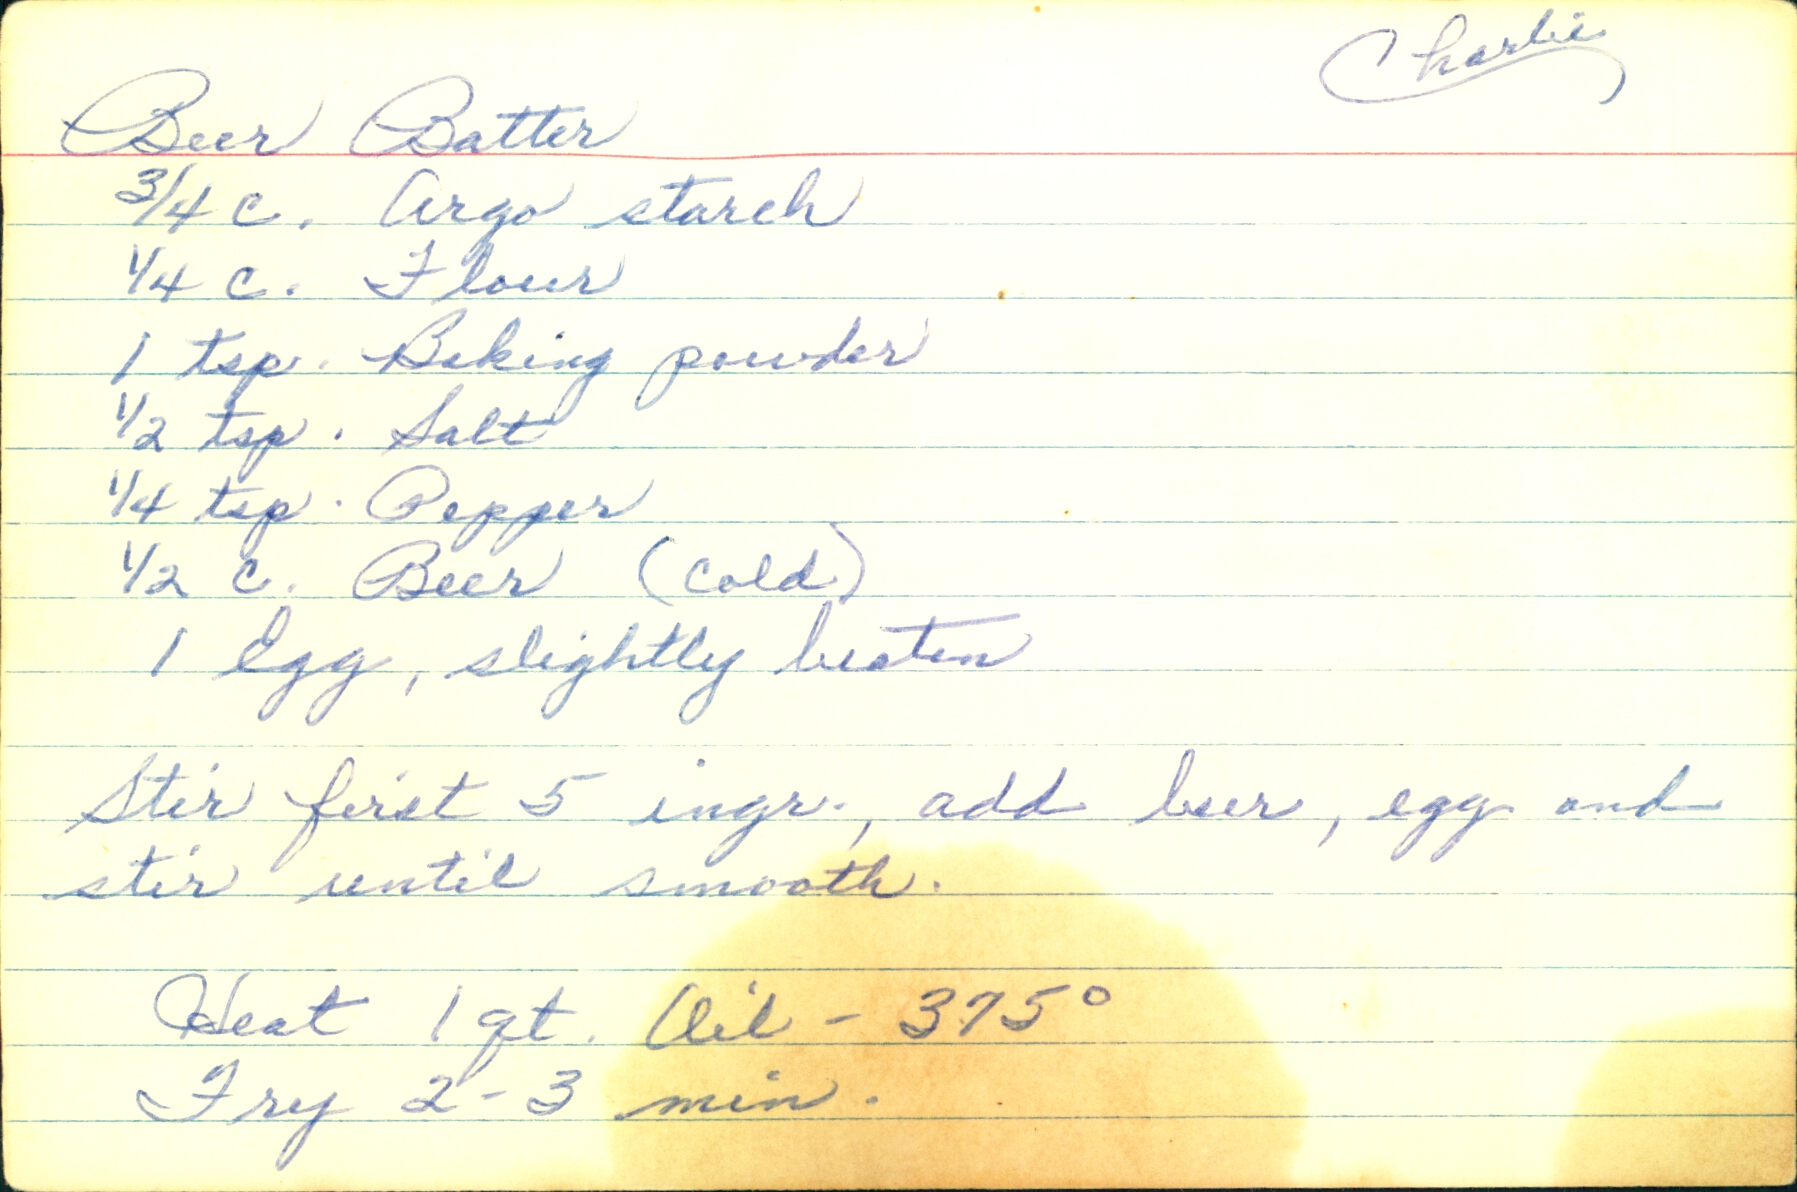 Charlie
Beer Batter
3/4 c. Argo starch
1/4 c. Flour
1 tsp. Baking powder
1/2 tsp. Salt
1/4 tsp. Pepper
1/2 c. Beer (cold)
1 Egg, slightly beaten
Stir first 5 ingr., add beer, egg and
stir until smooth.
Heat 1 qt. Oil - 375°
Fry 2-3 min.